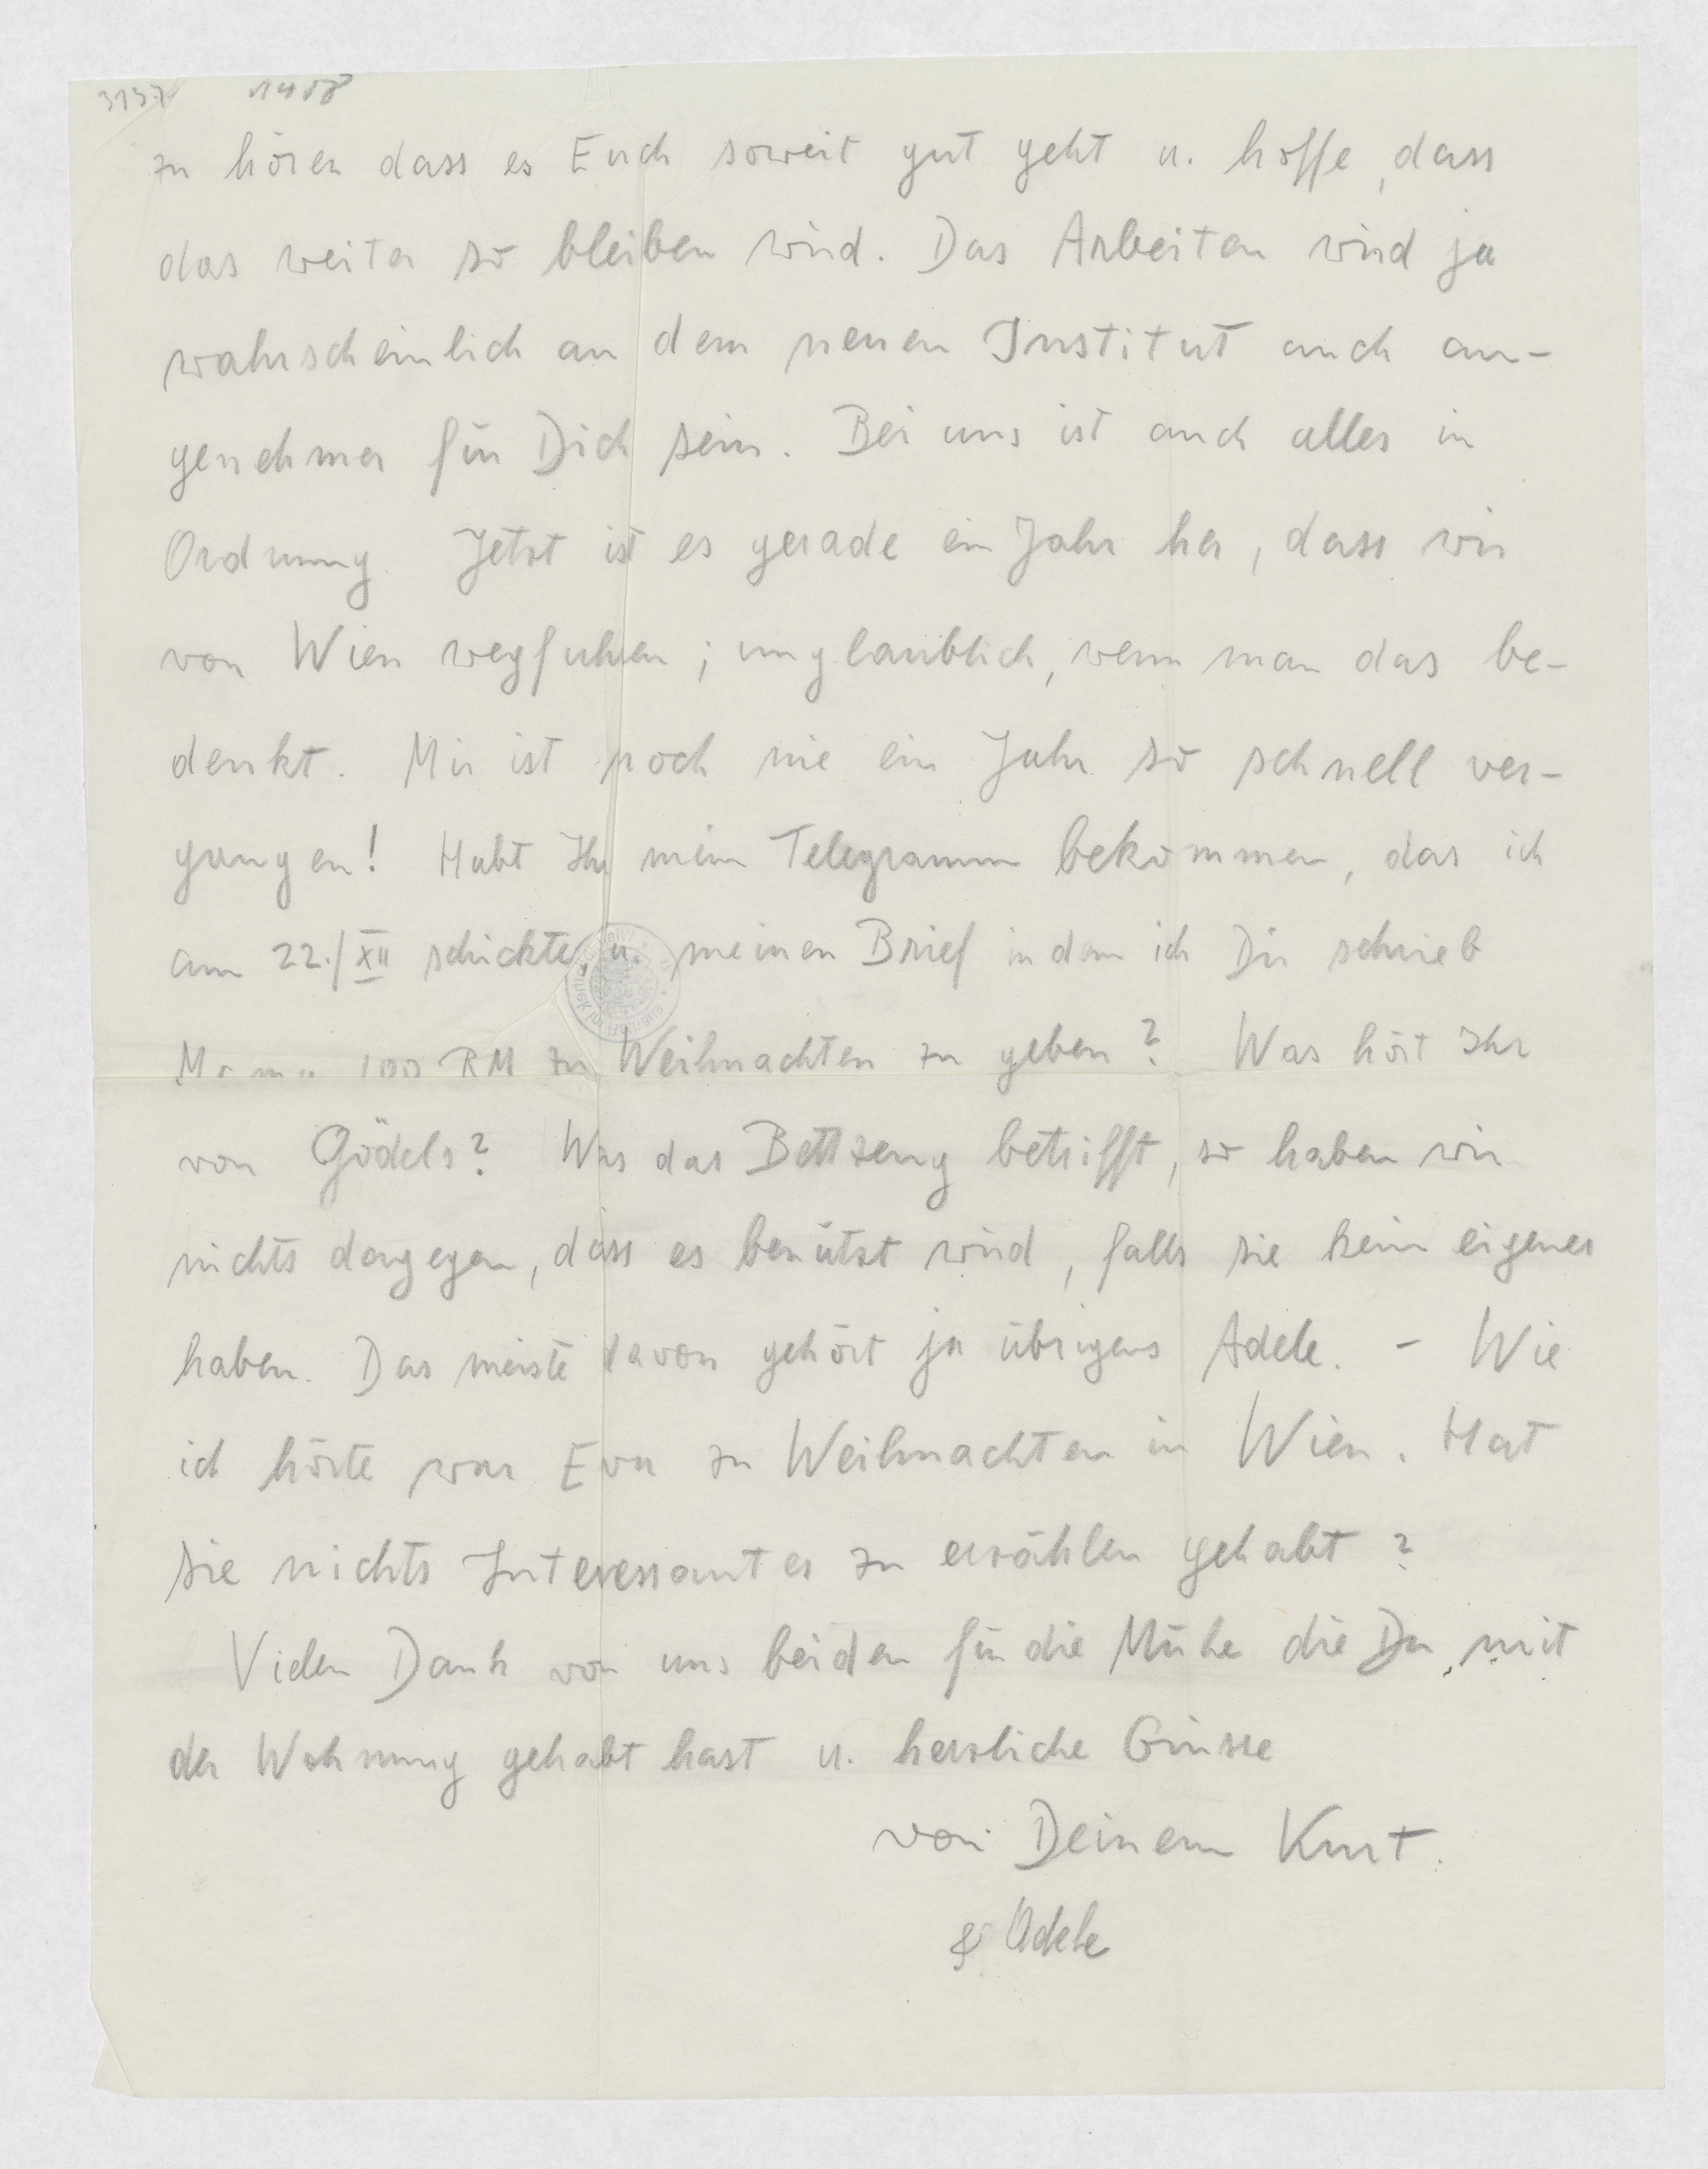 3137 1458
zu hören dass es Euch soweit gut geht u. hoffe, dass
das weiter so bleiben wird. Das Arbeiten wird ja
wahrscheinlich an dem neuen Institut auch an-
genehmer für Dich sein. Bei uns ist auch alles in
Ordnung. Jetzt ist es gerade ein Jahr her, dass wir
von Wien wegfuhren; unglaublich, wenn man das be-
denkt. Mir ist noch nie ein Jahr so schnell ver-
gangen! Habt Ihr mein Telegramm bekommen, das ich
am 22./XII schickte, u. meinen Brief in dem ich Dir schrieb
Mama 100 RM zu Weihnachten zu geben? Was hört Ihr
von Gödels? Was das Bettzeug betrifft, so haben wir
nichts dagegen, dass es benützt wird, falls sie kein eigenes
haben. Das meiste davon gehört ja übrigens Adele. – Wie
ich hörte war Eva zu Weihnachten in Wien. Hat
sie nichts Interessantes zu erzählen gehabt?
Vielen Dank von uns beiden für die Mühe die Du mit
der Wohnung gehabt hast u. herzliche Grüsse
von Deinem Kurt.
& Adele